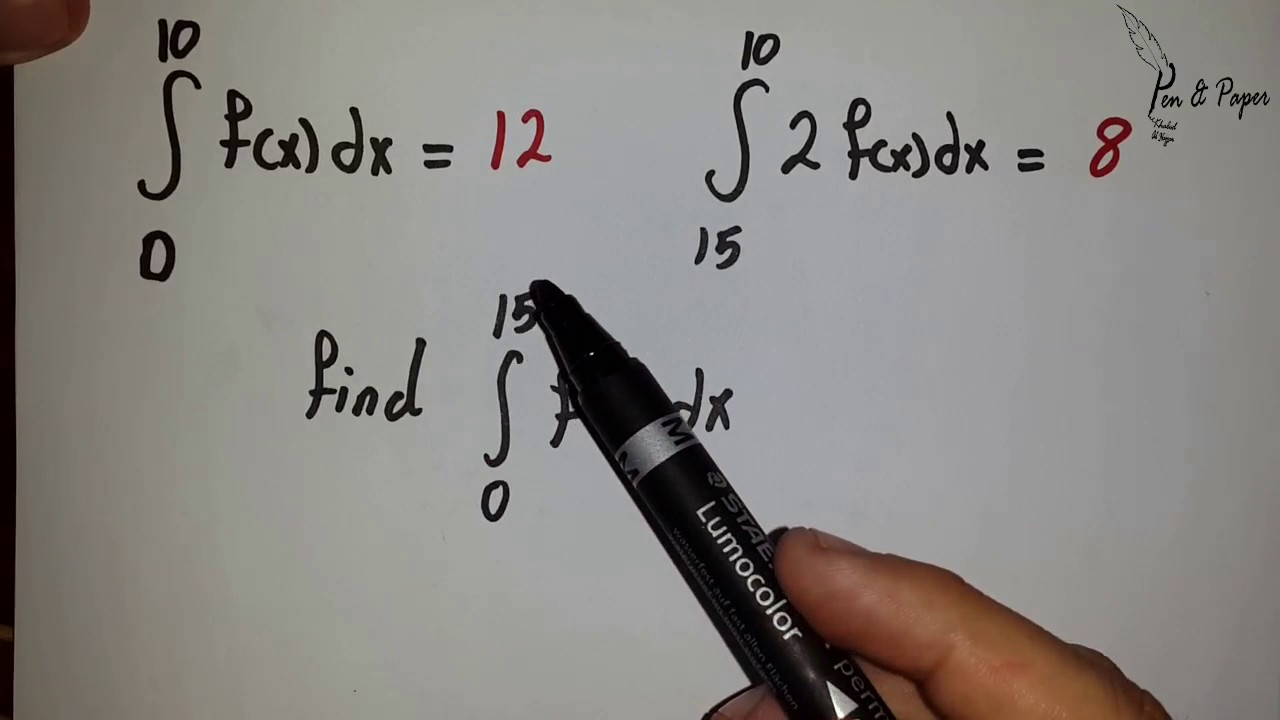 ∫₀¹⁰ f(x) dx = 12
∫₁₅¹⁰ 2 f(x) dx = 8
find ∫₀¹⁵ f dx
Pen & Paper
Khalid
STAE
Lumocolor
perm
M
M
wasserfest auf fast allen Flächen